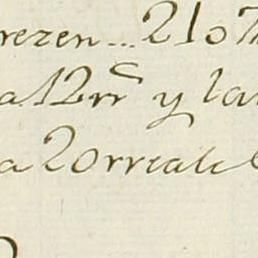 rezen... 210
a 12 rr^s y la
a 20 rreale